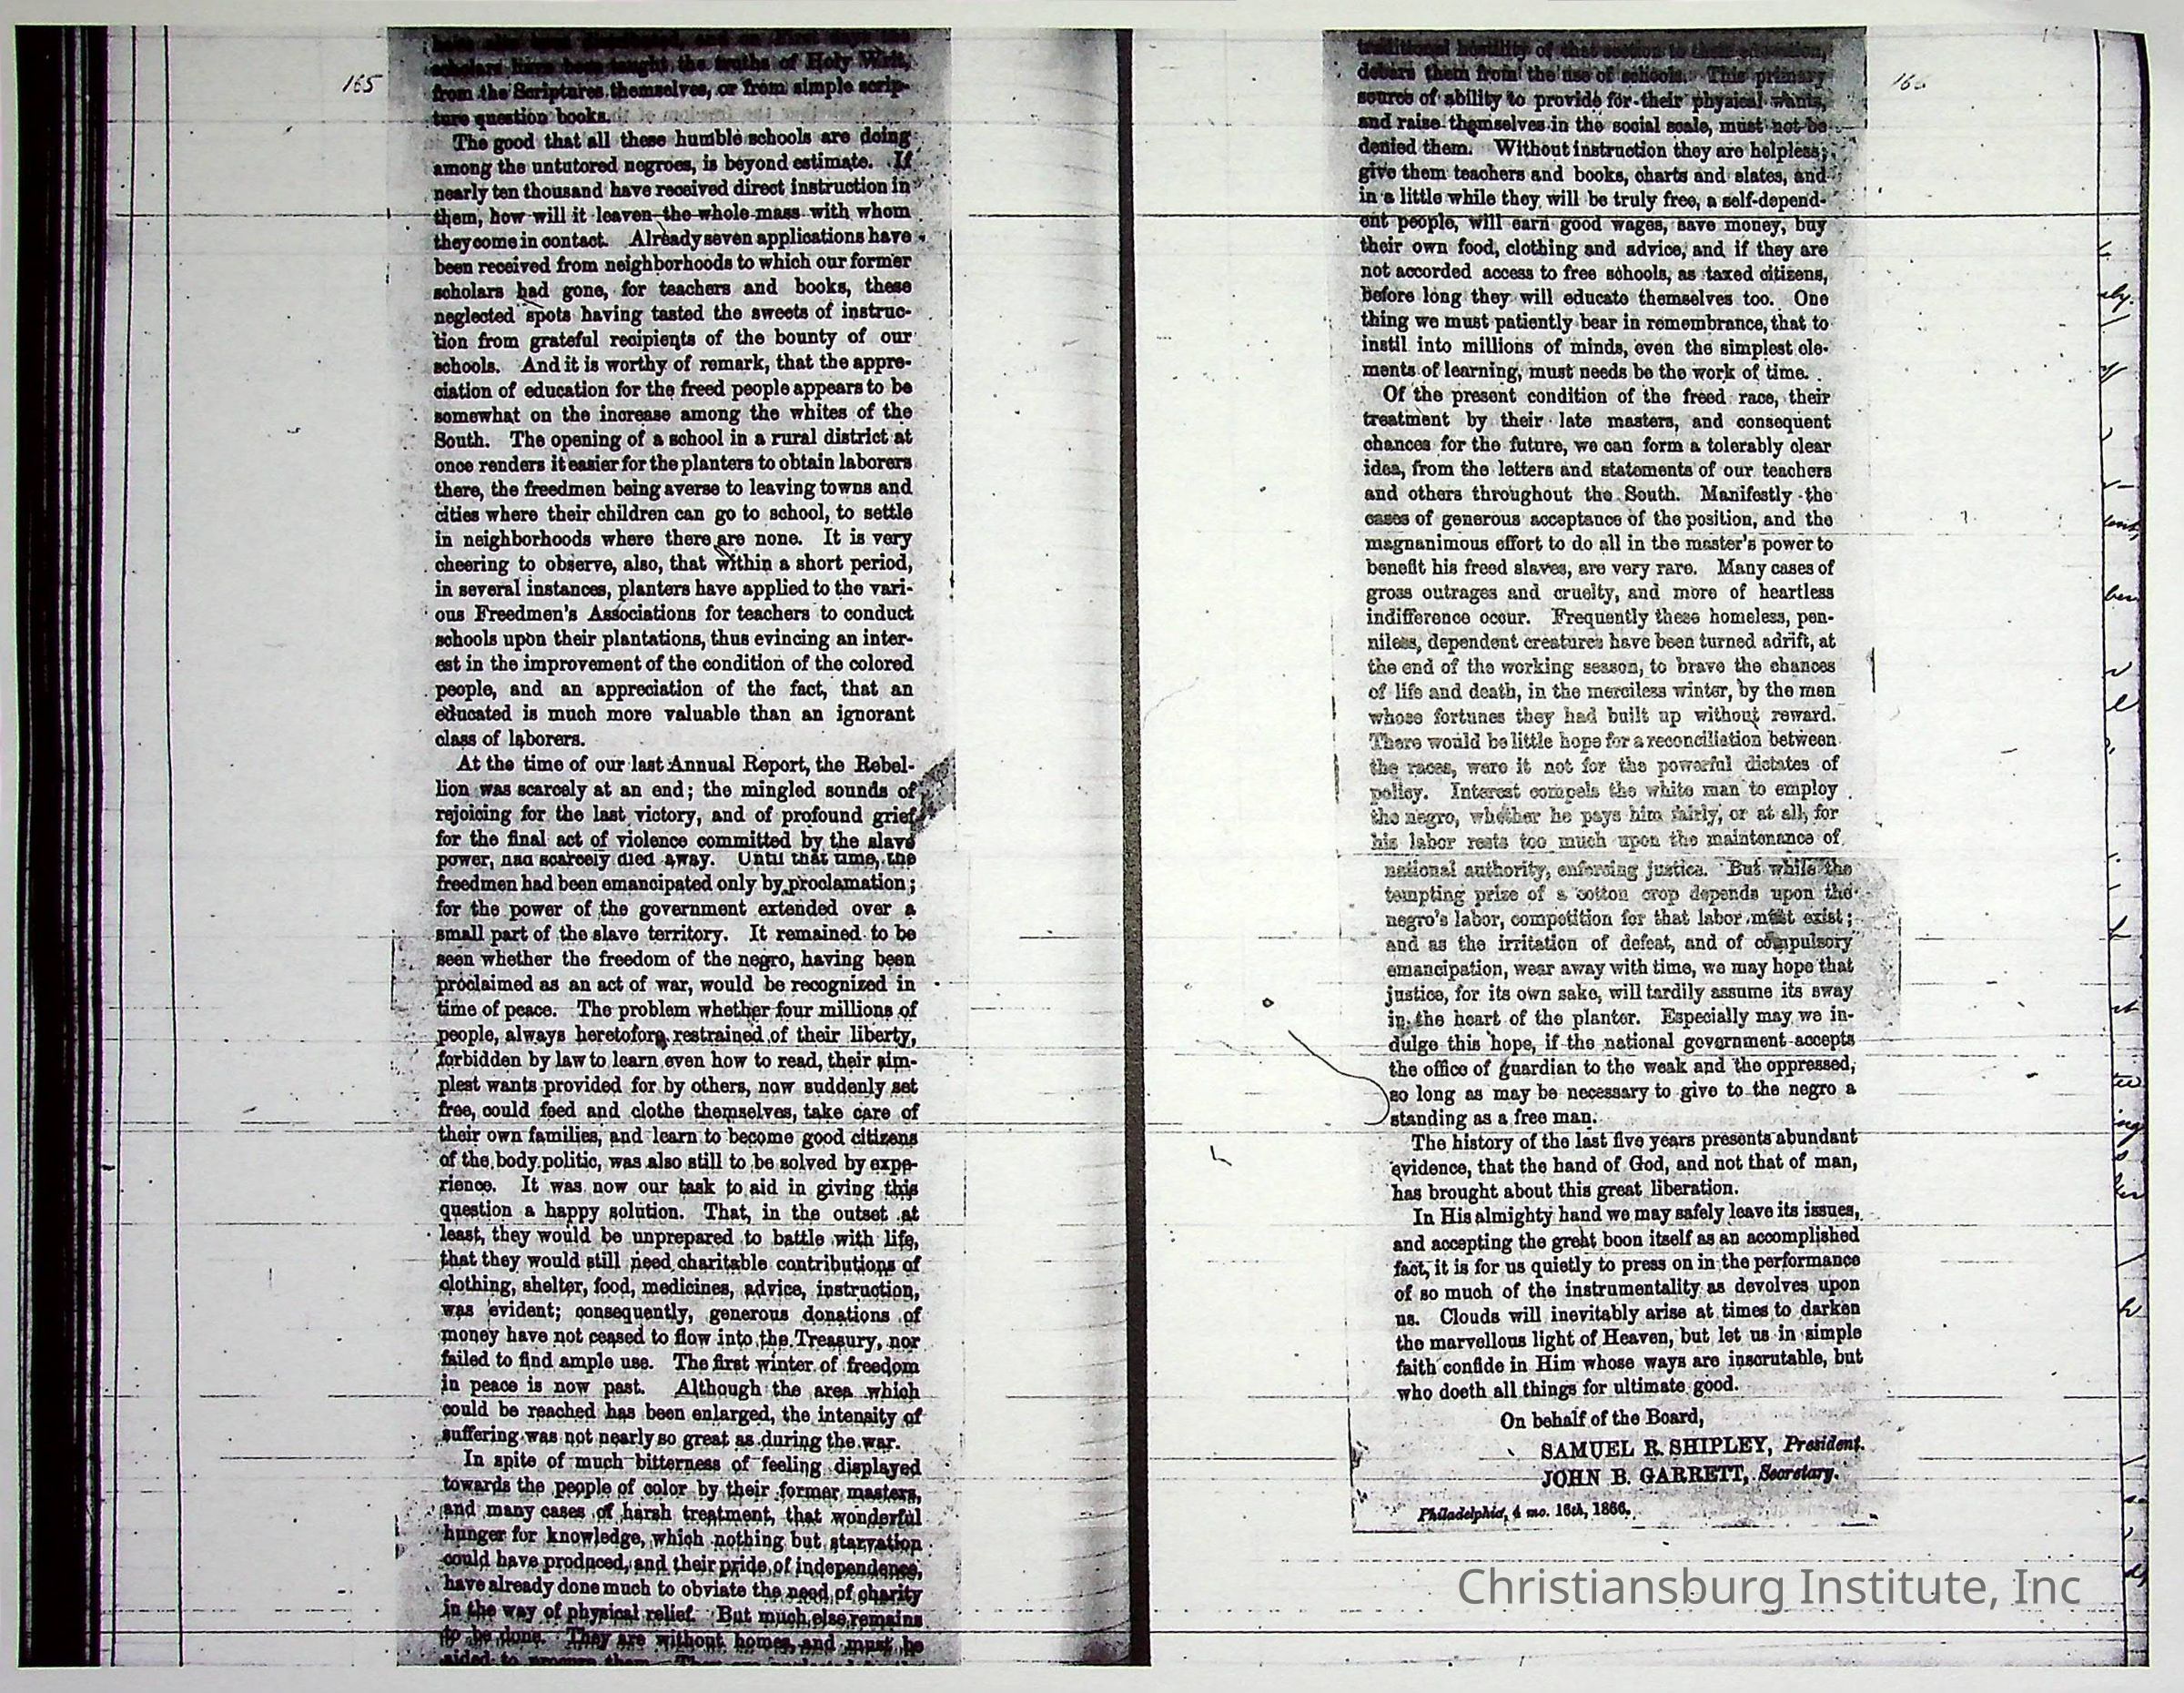 165
scholars have been taught the truths of Holy Writ,
from the Scriptures themselves, or from simple scrip-
ture question books.
The good that all these humble schools are doing
among the untutored negroes, is beyond estimate. If
nearly ten thousand have received direct instruction in
them, how will it leaven the whole mass with whom
they come in contact. Already seven applications have
been received from neighborhoods to which our former
scholars had gone, for teachers and books, these
neglected spots having tasted the sweets of instruc-
tion from grateful recipients of the bounty of our
schools. And it is worthy of remark, that the appre-
ciation of education for the freed people appears to be
somewhat on the increase among the whites of the
South. The opening of a school in a rural district at
once renders it easier for the planters to obtain laborers
there, the freedmen being averse to leaving towns and
cities where their children can go to school, to settle
in neighborhoods where there are none. It is very
cheering to observe, also, that within a short period,
in several instances, planters have applied to the vari-
ous Freedmen's Associations for teachers to conduct
schools upon their plantations, thus evincing an inter-
est in the improvement of the condition of the colored
people, and an appreciation of the fact, that an
educated is much more valuable than an ignorant
class of laborers.
At the time of our last Annual Report, the Rebel-
lion was scarcely at an end; the mingled sounds of
rejoicing for the last victory, and of profound grief
for the final act of violence committed by the slave
power, had scarcely died away. Until that time, the
freedmen had been emancipated only by proclamation;
for the power of the government extended over a
small part of the slave territory. It remained to be
seen whether the freedom of the negro, having been
proclaimed as an act of war, would be recognized in
time of peace. The problem whether four millions of
people, always heretofore restrained of their liberty,
forbidden by law to learn even how to read, their sim-
plest wants provided for by others, now suddenly set
free, could feed and clothe themselves, take care of
their own families, and learn to become good citizens
of the body politic, was also still to be solved by expe-
rience. It was now our task to aid in giving this
question a happy solution. That, in the outset at
least, they would be unprepared to battle with life,
that they would still need charitable contributions of
clothing, shelter, food, medicines, advice, instruction,
was evident; consequently, generous donations of
money have not ceased to flow into the Treasury, nor
failed to find ample use. The first winter of freedom
in peace is now past. Although the area which
could be reached has been enlarged, the intensity of
suffering was not nearly so great as during the war.
In spite of much bitterness of feeling displayed
towards the people of color by their former masters,
and many cases of harsh treatment, that wonderful
hunger for knowledge, which nothing but starvation
could have produced, and their pride of independence,
have already done much to obviate the need of charity
in the way of physical relief. But much else remains
to be done. They are without homes, and must be
aided to procure them.
traditional hostility of that section to their education,
debars them from the use of schools. This primary
source of ability to provide for their physical wants,
and raise themselves in the social scale, must not be
denied them. Without instruction they are helpless;
give them teachers and books, charts and slates, and
in a little while they will be truly free, a self-depend-
ent people, will earn good wages, save money, buy
their own food, clothing and advice, and if they are
not accorded access to free schools, as taxed citizens,
before long they will educate themselves too. One
thing we must patiently bear in remembrance, that to
instil into millions of minds, even the simplest ele-
ments of learning, must needs be the work of time.
Of the present condition of the freed race, their
treatment by their late masters, and consequent
chances for the future, we can form a tolerably clear
idea, from the letters and statements of our teachers
and others throughout the South. Manifestly the
cases of generous acceptance of the position, and the
magnanimous effort to do all in the master's power to
benefit his freed slaves, are very rare. Many cases of
gross outrages and cruelty, and more of heartless
indifference occur. Frequently these homeless, pen-
niless, dependent creatures have been turned adrift, at
the end of the working season, to brave the chances
of life and death, in the merciless winter, by the men
whose fortunes they had built up without reward.
There would be little hope for a reconciliation between
the races, were it not for the powerful dictates of
policy. Interest compels the white man to employ
the negro, whether he pays him fairly, or at all, for
his labor rests too much upon the maintenance of
national authority, enforcing justice. But while the
tempting prize of a cotton crop depends upon the
negro's labor, competition for that labor must exist;
and as the irritation of defeat, and of compulsory
emancipation, wear away with time, we may hope that
justice, for its own sake, will tardily assume its sway
in the heart of the planter. Especially may we in-
dulge this hope, if the national government accepts
the office of guardian to the weak and the oppressed,
so long as may be necessary to give to the negro a
standing as a free man.
The history of the last five years presents abundant
evidence, that the hand of God, and not that of man,
has brought about this great liberation.
In His almighty hand we may safely leave its issues,
and accepting the great boon itself as an accomplished
fact, it is for us quietly to press on in the performance
of so much of the instrumentality as devolves upon
us. Clouds will inevitably arise at times to darken
the marvellous light of Heaven, but let us in simple
faith confide in Him whose ways are inscrutable, but
who doeth all things for ultimate good.
On behalf of the Board,
SAMUEL R. SHIPLEY, President.
JOHN B. GARRETT, Secretary.
Philadelphia, 4 mo. 16th, 1866.
Christiansburg Institute, Inc